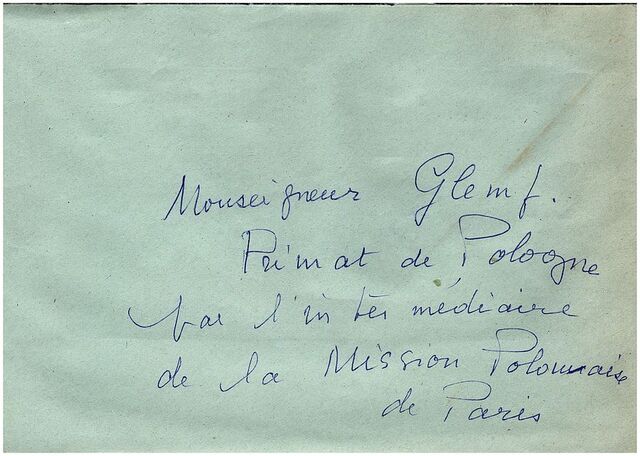 Monseigneur Glemf.
Primat de Pologne
par l'intérmédiaire
de la Mission Polonaise
de Paris